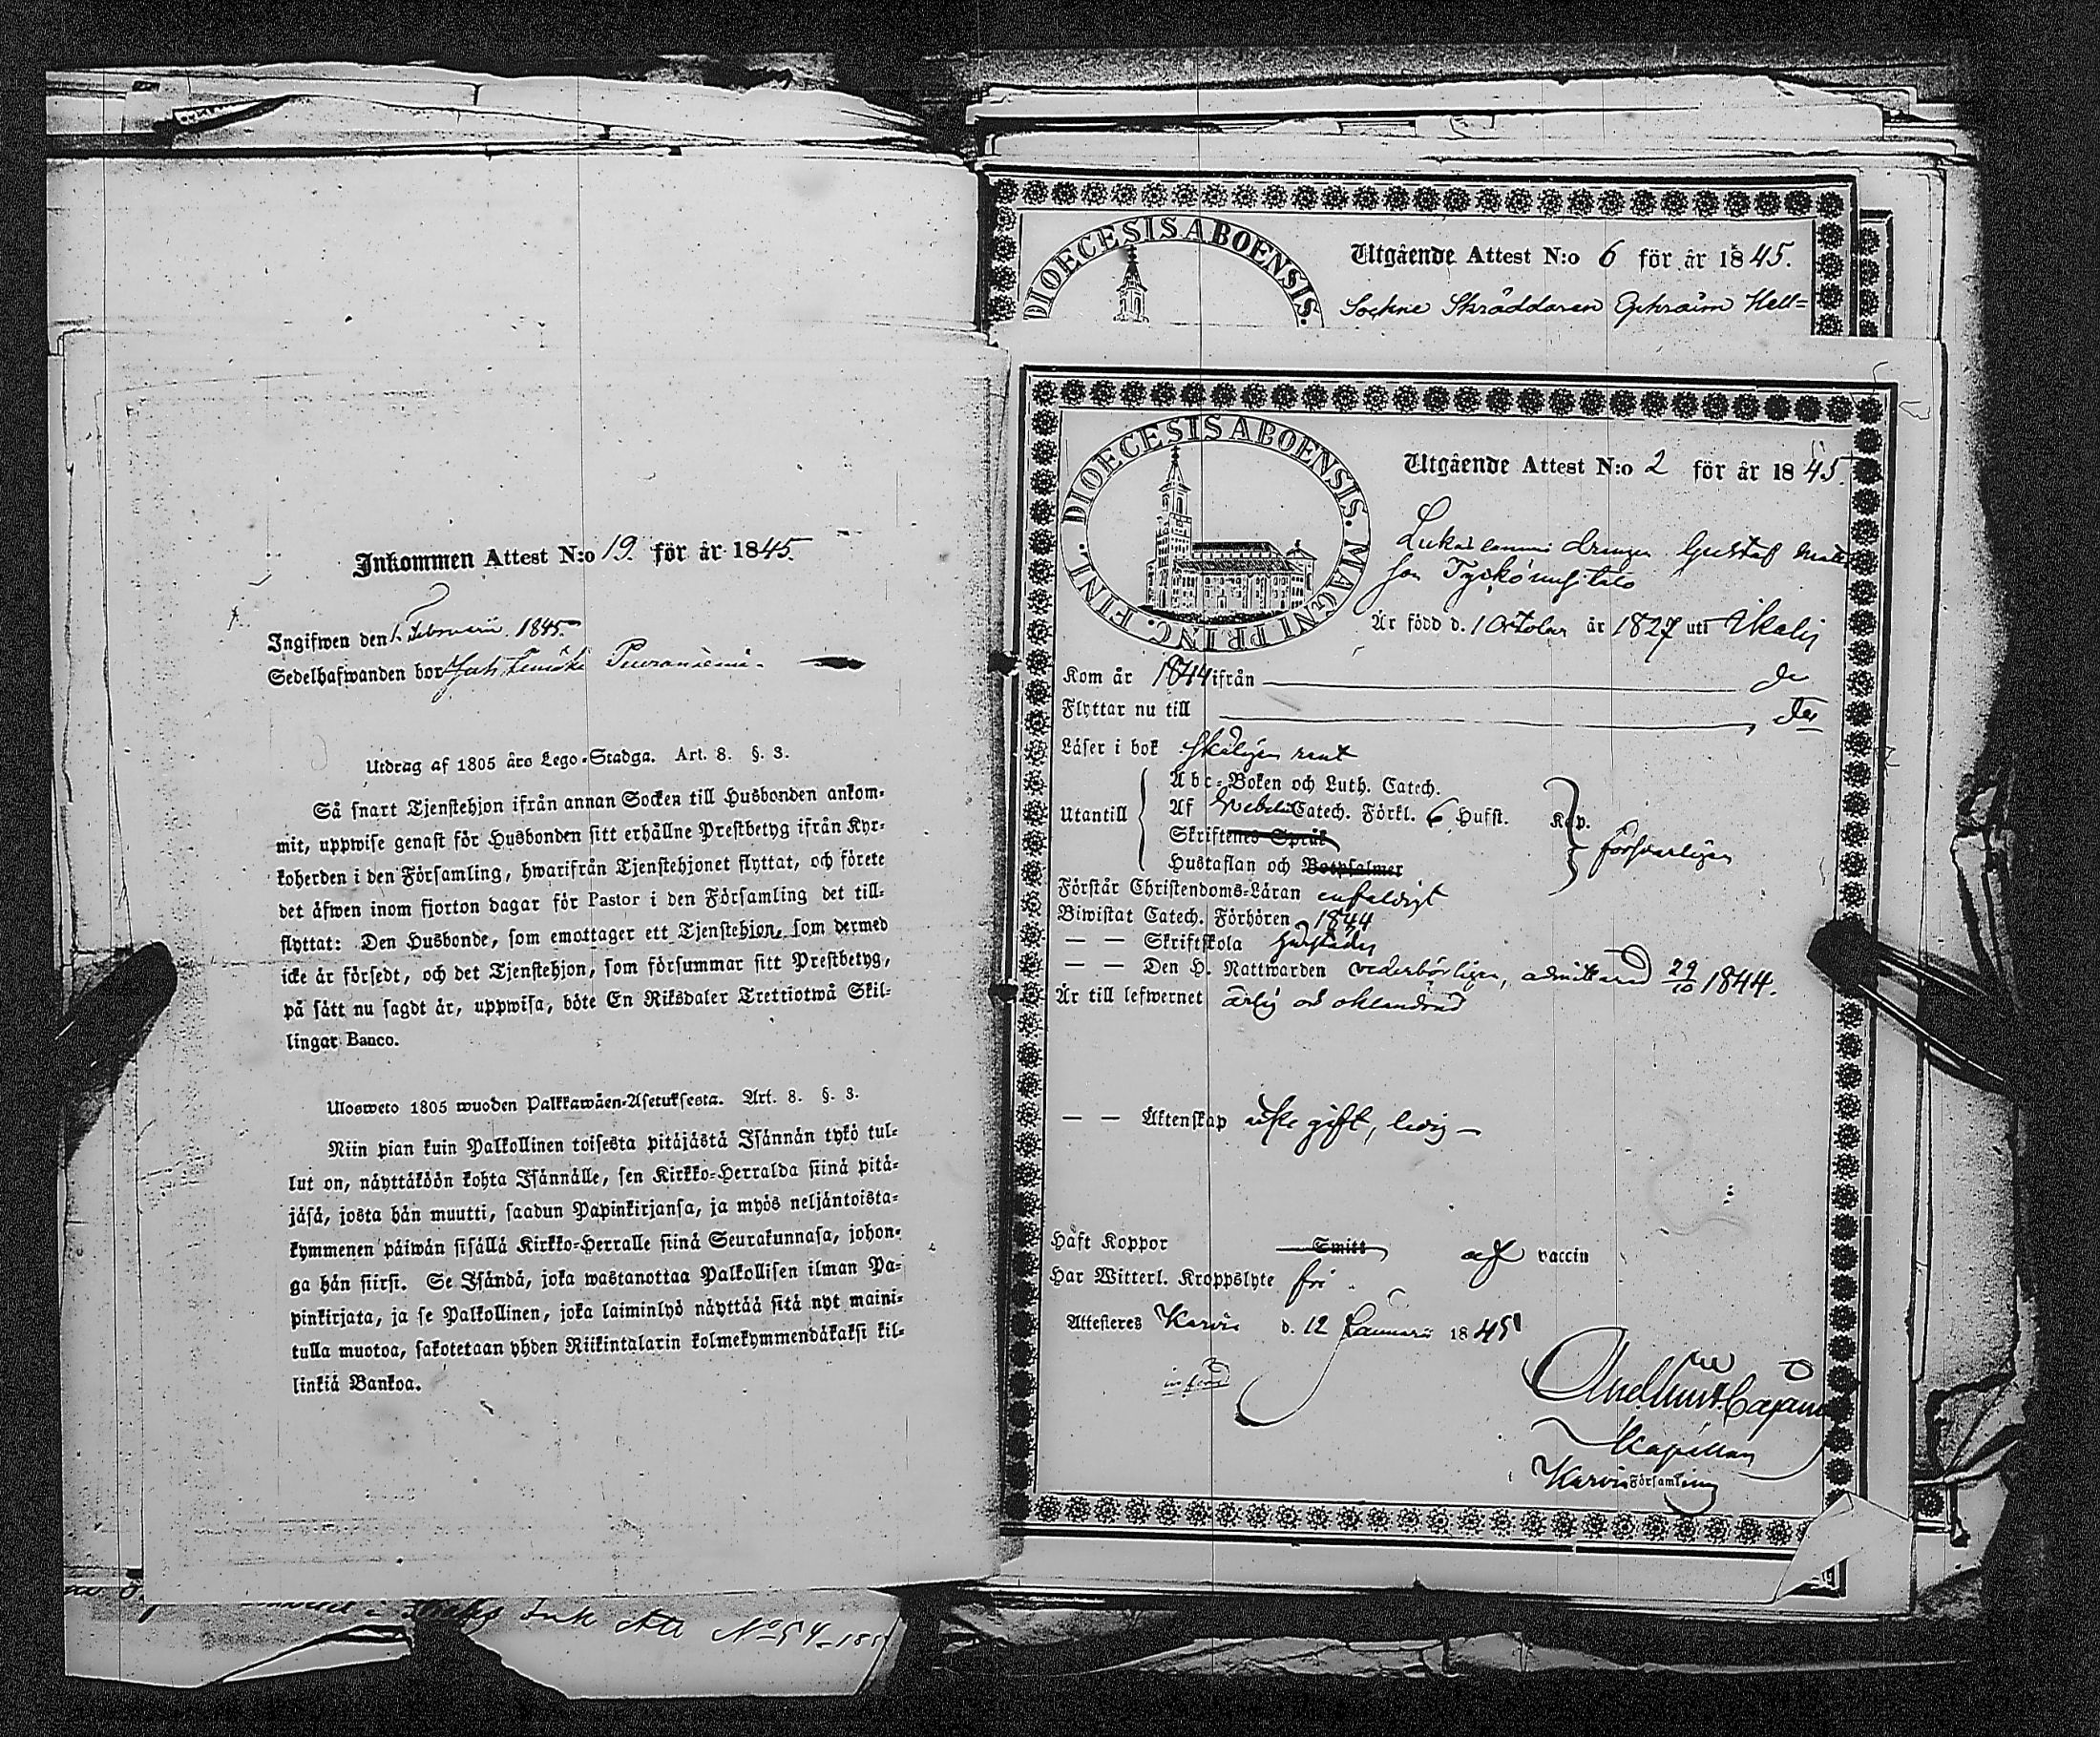 Inkommen Attest N:o 19. för år 1845.
Ingifwen den 1. Februarii 1845.
Sedelhafwanden bor
Utdrag af 1805 års Lego-Stadga. Art. 8. §. 3.
Så snart Tjenstehjon ifrån annan Socken till Husbonden ankom-
mit, uppwise genast för Husbonden sitt erhållne Prestbetyg ifrån Kyr-
koherden i den Församling, hwarifrån Tjenstehjonet flyttat, och förete
det äfwen inom fjorton dagar för Pastor i den Församling det till-
flyttat: Den Husbonde, som emottager ett Tjenstehjon, som dermed
icke är försedt, och det Tjenstehjon, som försummar sitt Prestbetyg,
på sätt nu sagdt är, uppwisa, böte En Riksdaler Trettiotwå Skil-
lingar Banco.
Ulosweto 1805 wuoden Palkkawäen-Asetuksesta. Art. 8. §. 3.
Niin pian kuin Palkollinen toisesta pitäjästä Isännän tykö tul-
lut on, näyttäköön kohta Isännälle, sen Kirkko-Herralda siinä pitä-
jäsä, josta hän muutti, saadun Papinkirjansa, ja myös neljäntoista-
kymmenen päiwän sisällä Kirkko-Herralle siinä Seurakunnasa, johon-
ga hän siirsi. Se Isändä, joka wastanottaa Palkollisen ilman Pa-
pinkirjata, ja se Palkollinen, joka laiminlyö näyttää sitä nyt maini-
tulla muotoa, sakotetaan yhden Riikintalarin kolmekymmendäkaksi kil-
linkiä Bankoa.
Ink Att No 54-185
DIOECESIS ABOENSIS.
Utgående Attest N:o 6 för år 1845.
Sockne Skräddaren Ephraim Hell=
DIOECESIS ABOENSIS. MAGNI PRINC. FINL.
Utgående Attest N:o 2 för år 1845.
drengen Gustaf Matts
son
Är född d. 1 October år 1827 uti Ikalis
Kom år 1844 ifrån
Flyttar nu till
Läser i bok skäligen rent
Utantill
Abc-Boken och Luth. Catech.
Af Svebelii Catech. Förkl. 6 Hufst. Kap.
Skriftenes Språk
försvarligen
Hustaflan och Botpsalmer
Förstår Christendoms-Läran enfaldigt
Biwistat Catech. Förhören 1844
— — Skriftskola
— — Den H. Nattwarden vederbörligen, admitterad 29/10 1844.
Är till lefwernet ärlig och oklandrad
— — Äktenskap icke gift, ledig —
Haft Koppor Smitt af vaccin
Har Witterl. Kroppslyte fri
Attesteres Karvia d. 12 Januarii 1845
Cajanus
Kapellan
i Karvia Församling